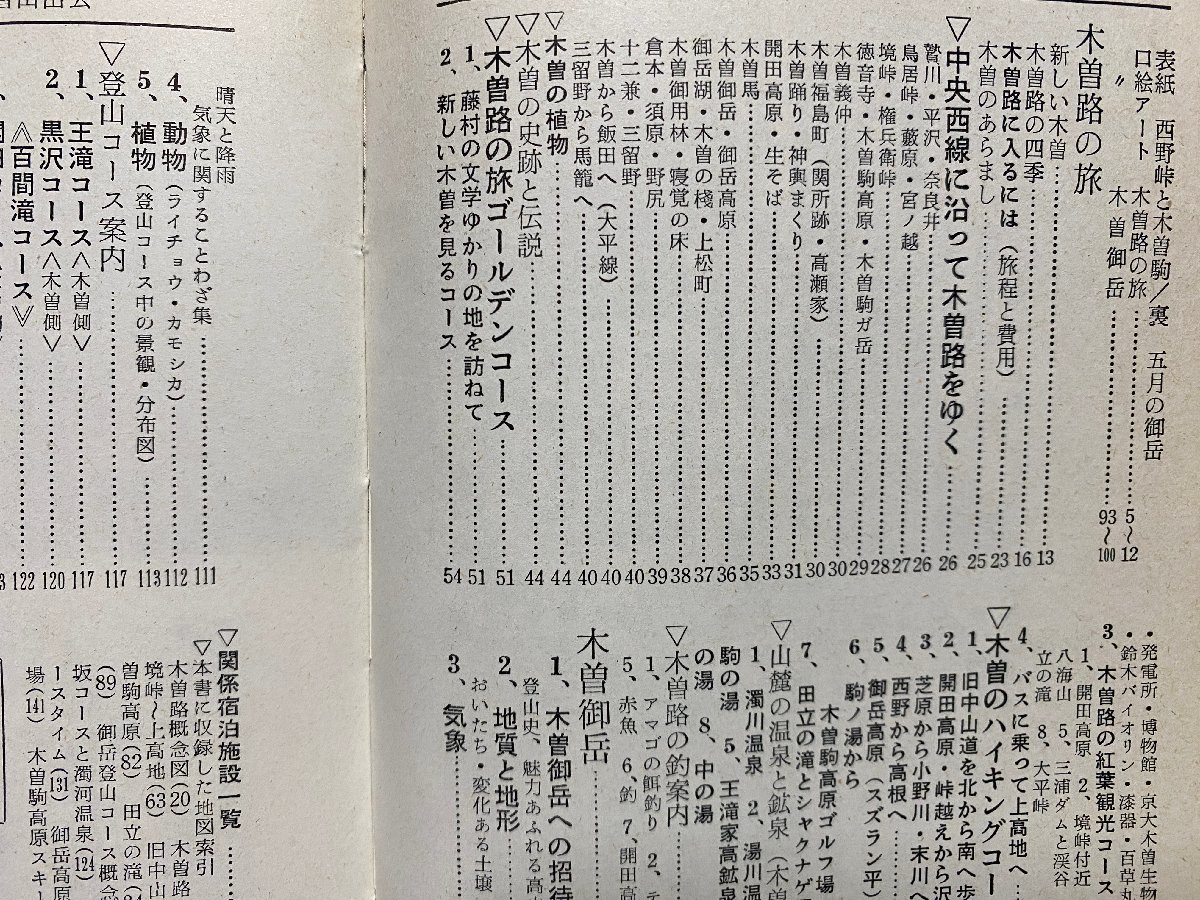 表紙　西野峠と木曽駒／裏　五月の御岳
口絵アート　木曽路の旅……5～12
〃　木曽御岳……93～100
木曽路の旅
新しい木曽……13
木曽路の四季……16
木曽路に入るには（旅程と費用）……23
木曽のあらまし……25
▽中央西線に沿って木曽路をゆく……26
贄川・平沢・奈良井……26
鳥居峠・藪原・宮ノ越……27
境峠・権兵衛峠……28
徳音寺・木曽駒高原・木曽駒ガ岳……29
木曽義仲……30
木曽福島町（関所跡・高瀬家）……30
木曽踊り・神輿まくり……31
開田高原・生そば……33
木曽馬……35
木曽御岳・御岳高原……36
御岳湖・木曽の棧・上松町……37
木曽御用林・寝覚の床……38
倉本・須原・野尻……39
十二兼・三留野……40
木曽から飯田へ（大平線）……40
三留野から馬籠へ……40
▽木曽の植物……44
▽木曽の史跡と伝説……44
▽木曽路の旅ゴールデンコース……51
1、藤村の文学ゆかりの地を訪ねて……51
2、新しい木曽を見るコース……54
・発電所・博物館・京大木曽生物
・鈴木バイオリン・漆器・百草丸
3、木曽路の紅葉観光コース
1、開田高原　2、境峠付近
八海山　5、三浦ダムと渓谷
立の滝　8、大平峠
4、バスに乗って上高地へ……
▽木曽のハイキングコー
1、旧中山道を北から南へ歩
2、開田高原・峠越えから沢
3、芝原から小野川・末川へ
4、西野から高根へ
5、御岳高原（スズラン平）
6、駒ノ湯から
木曽駒高原ゴルフ場
7、田立の滝とシャクナゲ
▽山麓の温泉と鉱泉（木曽
1、濁川温泉　2、湯川温
駒の湯　5、王滝家高鉱泉
の湯　8、中の湯
▽木曽路の釣案内
1、アマゴの餌釣り　2、テ
5、赤魚　6、釣　7、開田高
木曽御岳
1、木曽御岳への招待
登山史、魅力あふれる高
2、地質と地形
おいたち・変化ある土壌
3、気象
晴天と降雨
気象に関することわざ集……111
4、動物（ライチョウ・カモシカ）……112
5、植物（登山コース中の景観・分布図）……113
▽登山コース案内……117
1、王滝コース〈木曽側〉……117
2、黒沢コース〈木曽側〉……120
《百間滝コース》……122
▽関係宿泊施設一覧……
▽本書に収録した地図索引
木曽路概念図(20)　木曽路
境峠～上高地(63)　旧中山
曽駒高原(82)　田立の滝
(89)　御岳登山コース概念
坂コースと濁河温泉(124)
ースタイム(131)　御岳高原
場(141)　木曽駒高原スキー